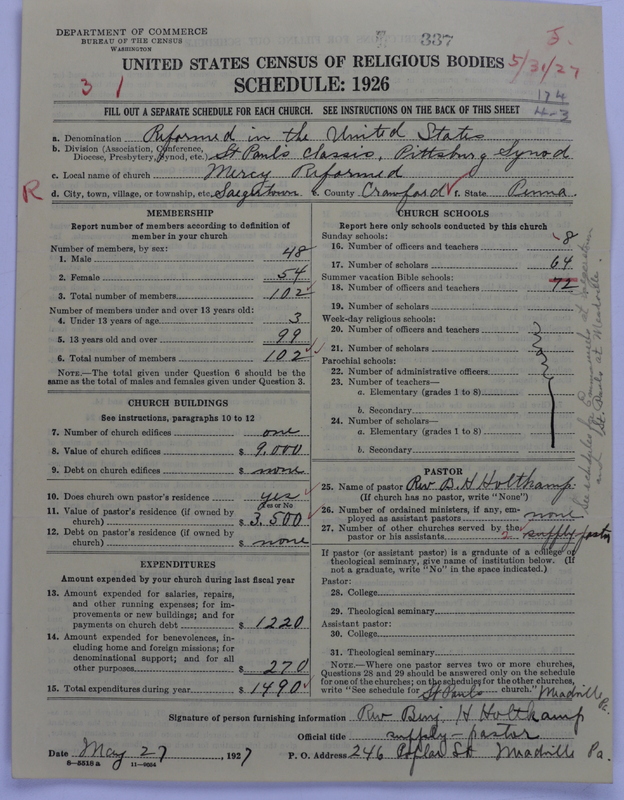 DEPARTMENT OF COMMERCE
BUREAU OF THE CENSUS
WASHINGTON
337
UNITED STATES CENSUS OF RELIGIOUS BODIES
5/31/27
SCHEDULE: 1926
3 1
174
4-3
FILL OUT A SEPARATE SCHEDULE FOR EACH CHURCH. SEE INSTRUCTIONS ON THE BACK OF THIS SHEET
a. Denomination Reformed in the United States
b. Division (Association, Conference, Diocese, Presbytery, Synod, etc.) St. Paul's Classis, Pittsburg Synod
c. Local name of church Mercy Reformed
R d. City, town, village, or township, etc. Saegertown e. County Crawford f. State Penna.
MEMBERSHIP
Report number of members according to definition of
member in your church
Number of members, by sex:
1. Male 48
2. Female 54
3. Total number of members 102
Number of members under and over 13 years old:
4. Under 13 years of age 3
5. 13 years old and over 99
6. Total number of members 102
NOTE.—The total given under Question 6 should be the
same as the total of males and females given under Question 3.
CHURCH BUILDINGS
See instructions, paragraphs 10 to 12
7. Number of church edifices one
8. Value of church edifices $ 9,000
9. Debt on church edifices $ none
10. Does church own pastor's residence yes
Yes or No
11. Value of pastor's residence (if owned by
church) $ 3,500
12. Debt on pastor's residence (if owned by
church) $ none
EXPENDITURES
Amount expended by your church during last fiscal year
13. Amount expended for salaries, repairs,
and other running expenses; for im-
provements or new buildings; and for
payments on church debt $ 1220
14. Amount expended for benevolences, in-
cluding home and foreign missions; for
denominational support; and for all
other purposes $ 270
15. Total expenditures during year $ 1490
CHURCH SCHOOLS
Report here only schools conducted by this church
Sunday schools:
16. Number of officers and teachers 8
17. Number of scholars 64
Summer vacation Bible schools:
72
18. Number of officers and teachers
19. Number of scholars
Week-day religious schools:
20. Number of officers and teachers
21. Number of scholars
Parochial schools:
22. Number of administrative officers
23. Number of teachers—
a. Elementary (grades 1 to 8)
b. Secondary
24. Number of scholars—
a. Elementary (grades 1 to 8)
b. Secondary
See schedules for Emmanuels at Saegertown
and St. Pauls at Meadville.
PASTOR
25. Name of pastor Rev B. H Holtkamp
(If church has no pastor, write "None")
26. Number of ordained ministers, if any, em-
ployed as assistant pastors none
27. Number of other churches served by the
pastor or his assistants 2 supply pastor
If pastor (or assistant pastor) is a graduate of a college or
theological seminary, give name of institution below. (If
not a graduate, write "No" in the space indicated.)
Pastor:
28. College
29. Theological seminary
Assistant pastor:
30. College
31. Theological seminary
NOTE.—Where one pastor serves two or more churches,
Questions 28 and 29 should be answered only on the schedule
for one of the churches; on the schedules for the other churches,
write "See schedule for St Pauls church." Meadville Pa.
Signature of person furnishing information Rev Benj H Holtkamp
Official title supply-pastor
Date May 27, 1927 P. O. Address 246 Poplar St Meadville Pa.
8—5518 a 11—9054